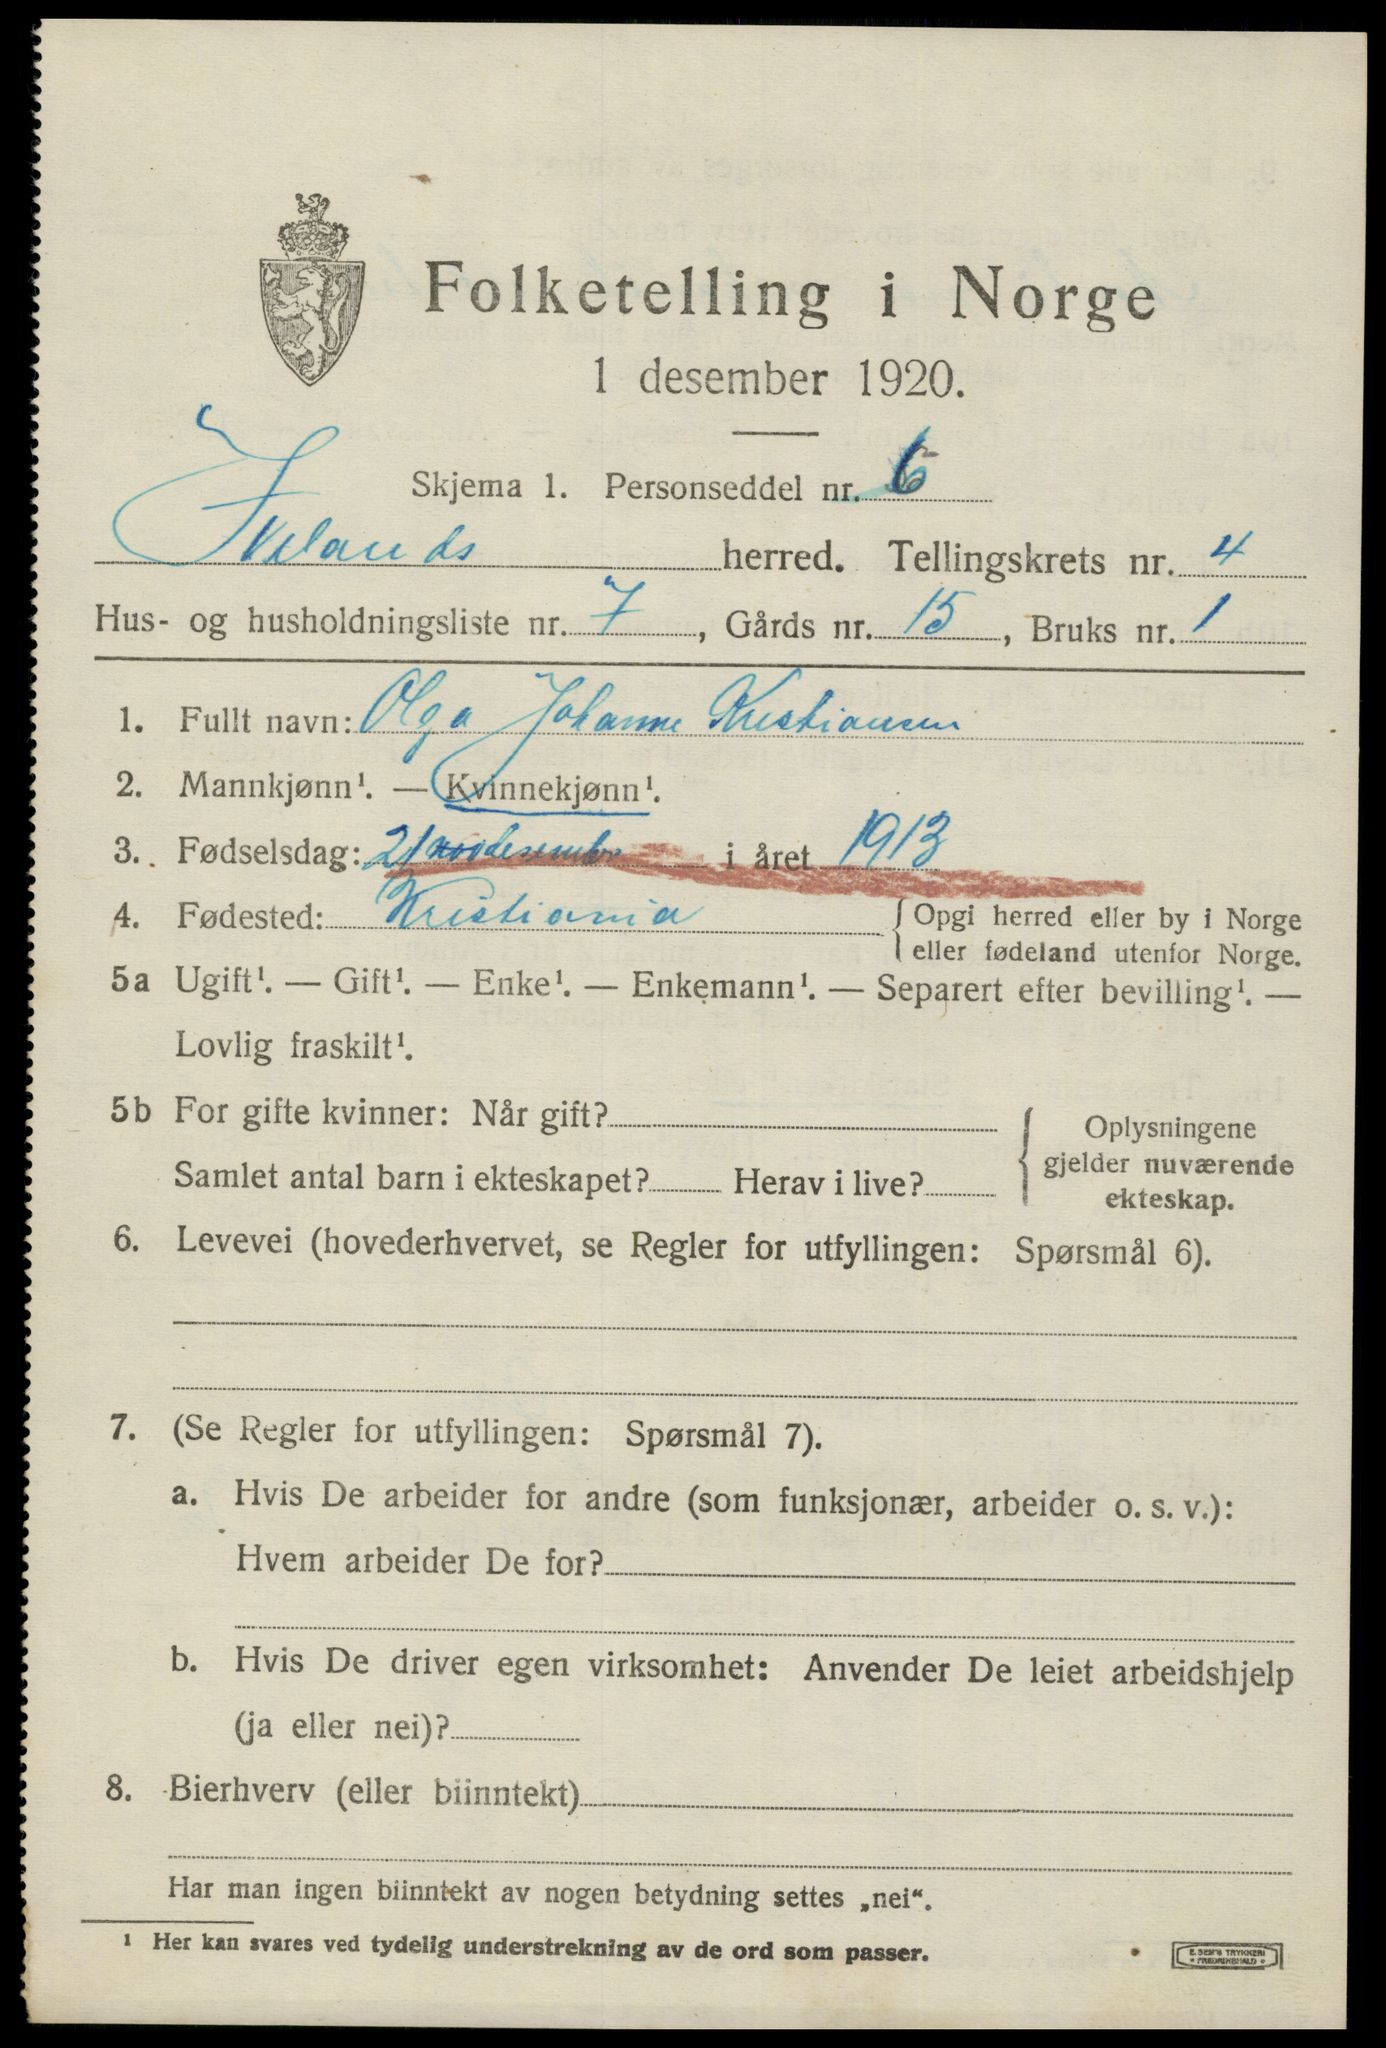 Folketelling i Norge
1 desember 1920.
Skjema 1. Personseddel nr. 6
Ivelands herred. Tellingskrets nr. 4
Hus- og husholdningsliste nr. 7, Gårds nr. 15, Bruks nr. 1
1. Fullt navn: Olga Johanne Kristiansen
2. Mannkjønn¹. — Kvinnekjønn¹.
3. Fødselsdag: 21 desember i året 1913
4. Fødested: Kristiania { Opgi herred eller by i Norge
eller fødeland utenfor Norge.
5a Ugift¹. — Gift¹. — Enke¹. — Enkemann¹. — Separert efter bevilling¹. —
Lovlig fraskilt¹.
5b For gifte kvinner: Når gift?
Samlet antal barn i ekteskapet? Herav i live?
Oplysningene
gjelder nuværende
ekteskap.
6. Levevei (hovederhvervet, se Regler for utfyllingen: Spørsmål 6).
7. (Se Regler for utfyllingen: Spørsmål 7).
a. Hvis De arbeider for andre (som funksjonær, arbeider o. s. v.):
Hvem arbeider De for?
b. Hvis De driver egen virksomhet: Anvender De leiet arbeidshjelp
(ja eller nei)?
8. Bierhverv (eller biinntekt)
Har man ingen biinntekt av nogen betydning settes „nei“.
¹ Her kan svares ved tydelig understrekning av de ord som passer.
E. SEM'S TRYKKERI
* FREDRIKSHALD *